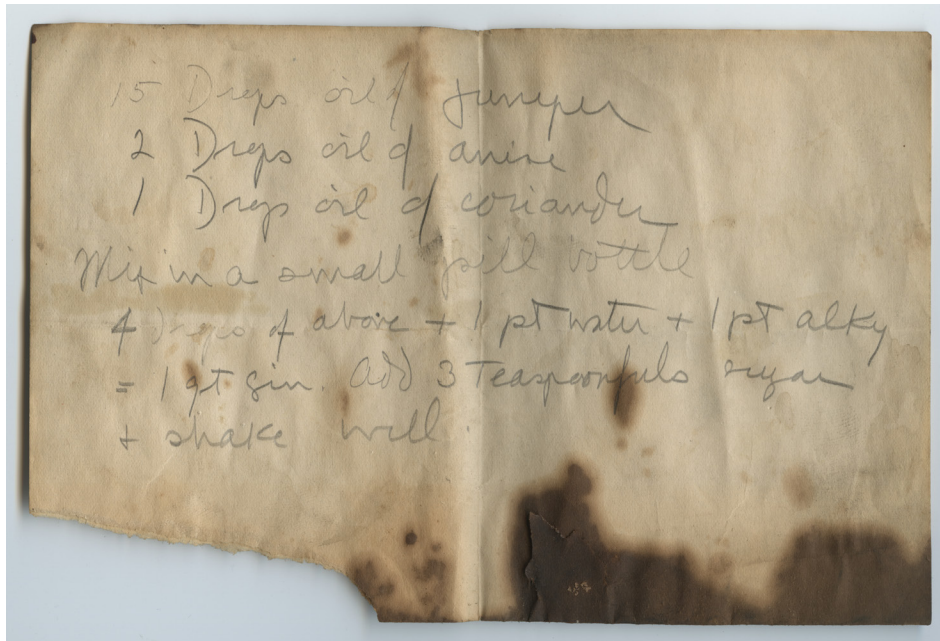 15 Drops oil of Juniper
2 Drops oil of anise
1 Drops oil of coriander
Mix in a small pill bottle
4 Drops of above + 1 pt water + 1 pt alky
= 1 qt gin. Add 3 Teaspoonfuls sugar
+ shake well.